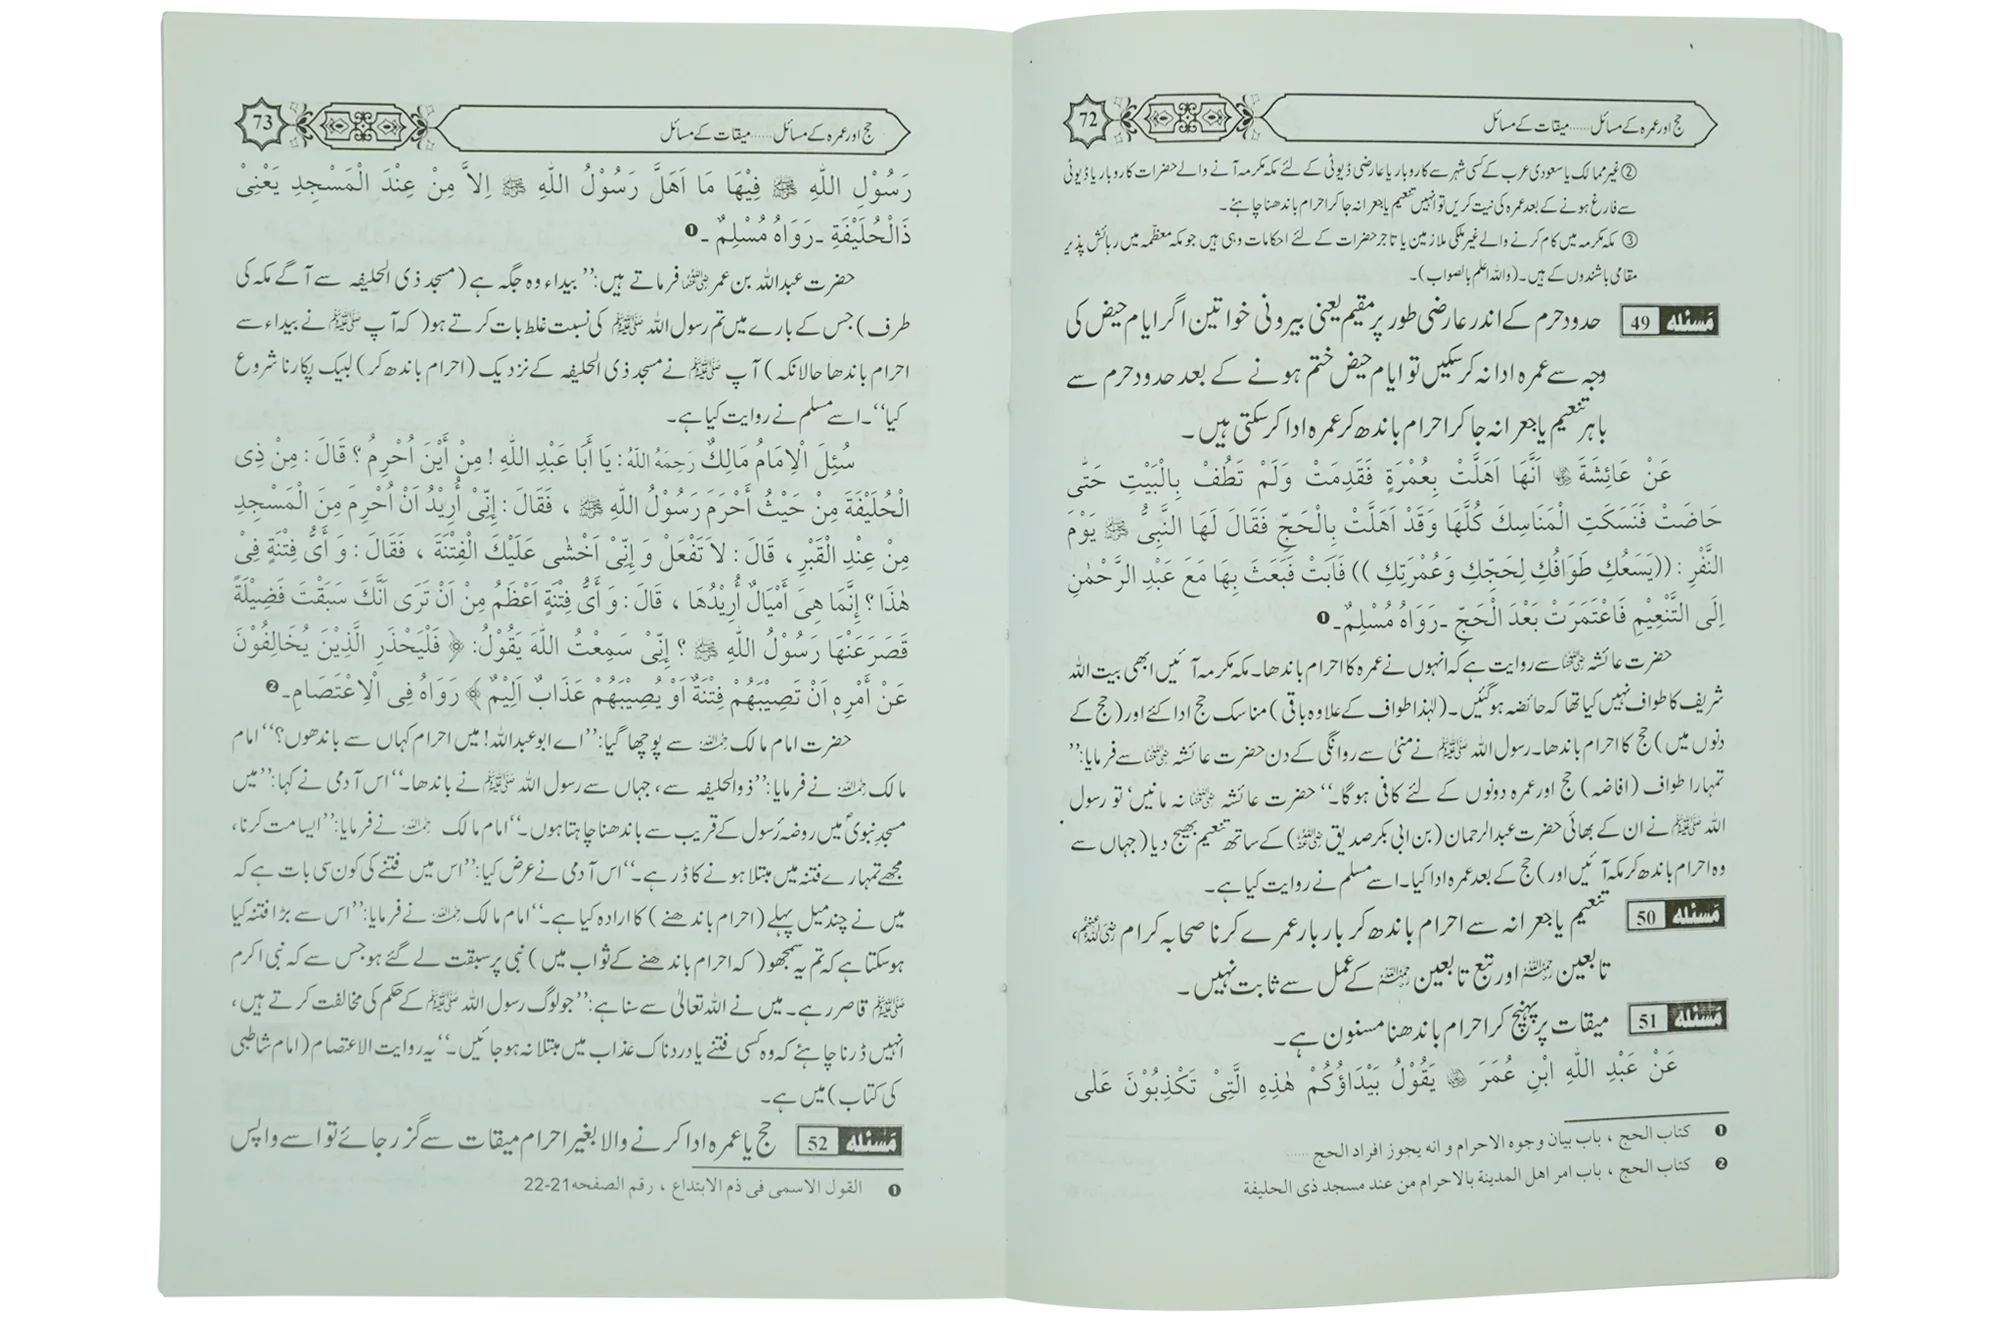 72
حج اور عمرہ کے مسائل......میقات کے مسائل
② غیر ممالک یا سعودی عرب کے کسی شہر سے کاروبار یا عارضی ڈیوٹی کے لئے مکہ مکرمہ آنے والے حضرات کاروبار یا ڈیوٹی
سے فارغ ہونے کے بعد عمرہ کی نیت کریں تو انہیں تنعیم یا جعرانہ جا کر احرام باندھنا چاہئے۔
③ مکہ مکرمہ میں کام کرنے والے غیر ملکی ملازمین یا تاجر حضرات کے لئے احکامات وہی ہیں جو مکہ معظمہ میں رہائش پذیر
مقامی باشندوں کے ہیں۔ (واللہ اعلم بالصواب)۔
مَسئلہ 49 حدود حرم کے اندر عارضی طور پر مقیم یعنی بیرونی خواتین اگر ایام حیض کی
وجہ سے عمرہ ادا نہ کر سکیں تو ایام حیض ختم ہونے کے بعد حدود حرم سے
باہر تنعیم یا جعرانہ جا کر احرام باندھ کر عمرہ ادا کر سکتی ہیں۔
عَنْ عَائِشَةَ رضی اللہ عنہا اَنَّهَا اَهَلَّتْ بِعُمْرَةٍ فَقَدِمَتْ وَلَمْ تَطُفْ بِالْبَيْتِ حَتّٰى
حَاضَتْ فَنَسَكَتِ الْمَنَاسِكَ كُلَّهَا وَقَدْ اَهَلَّتْ بِالْحَجِّ فَقَالَ لَهَا النَّبِىُّ ﷺ يَوْمَ
النَّفْرِ : ((يَسَعُكِ طَوَافُكِ لِحَجِّكِ وَعُمْرَتِكِ )) فَابَتْ فَبَعَثَ بِهَا مَعَ عَبْدِ الرَّحْمٰنِ
اِلَى التَّنْعِيْمِ فَاعْتَمَرَتْ بَعْدَ الْحَجِّ ۔رَوَاهُ مُسْلِمٌ۔❶
حضرت عائشہ رضی اللہ عنہا سے روایت ہے کہ انہوں نے عمرہ کا احرام باندھا۔ مکہ مکرمہ آئیں ابھی بیت اللہ
شریف کا طواف نہیں کیا تھا کہ حائضہ ہو گئیں۔ (لہٰذا طواف کے علاوہ باقی) مناسک حج ادا کئے اور (حج کے
دنوں میں) حج کا احرام باندھا۔ رسول اللہ ﷺ نے منیٰ سے روانگی کے دن حضرت عائشہ رضی اللہ عنہا سے فرمایا: ’’
تمہارا طواف (افاضہ) حج اور عمرہ دونوں کے لئے کافی ہو گا۔‘‘ حضرت عائشہ رضی اللہ عنہا نہ مانیں‘ تو رسول
اللہ ﷺ نے ان کے بھائی حضرت عبدالرحمان (بن ابی بکر صدیق رضی اللہ عنہما) کے ساتھ تنعیم بھیج دیا (جہاں سے
وہ احرام باندھ کر مکہ آئیں اور) حج کے بعد عمرہ ادا کیا۔ اسے مسلم نے روایت کیا ہے۔
مَسئلہ 50 تنعیم یا جعرانہ سے احرام باندھ کر بار بار عمرے کرنا صحابہ کرام رضی اللہ عنہم،
تابعین رحمہم اللہ اور تبع تابعین رحمہم اللہ کے عمل سے ثابت نہیں۔
مَسئلہ 51 میقات پر پہنچ کر احرام باندھنا مسنون ہے۔
عَنْ عَبْدِ اللّٰهِ ابْنِ عُمَرَ رضی اللہ عنہما يَقُوْلُ بَيْدَاؤُكُمْ هٰذِهِ الَّتِىْ تَكْذِبُوْنَ عَلٰى
❶ كتاب الحج ، باب بيان وجوه الاحرام و انه يجوز افراد الحج ......
❷ كتاب الحج ، باب امر اهل المدينة بالاحرام من عند مسجد ذى الحليفة
73
حج اور عمرہ کے مسائل......میقات کے مسائل
رَسُوْلِ اللّٰهِ ﷺ فِيْهَا مَا اَهَلَّ رَسُوْلُ اللّٰهِ ﷺ اِلاَّ مِنْ عِنْدَ الْمَسْجِدِ يَعْنِىْ
ذَالْحُلَيْفَةِ ۔رَوَاهُ مُسْلِمٌ ۔❶
حضرت عبداللہ بن عمر رضی اللہ عنہما فرماتے ہیں: ’’بیداء وہ جگہ ہے (مسجد ذی الحلیفہ سے آگے مکہ کی
طرف) جس کے بارے میں تم رسول اللہ ﷺ کی نسبت غلط بات کرتے ہو( کہ آپ ﷺ نے بیداء سے
احرام باندھا حالانکہ) آپ ﷺ نے مسجد ذی الحلیفہ کے نزدیک (احرام باندھ کر) لبیک پکارنا شروع
کیا‘‘۔ اسے مسلم نے روایت کیا ہے۔
سُئِلَ الْاِمَامُ مَالِكٌ رَحِمَهُ اللّٰهُ : يَا أَبَا عَبْدِ اللّٰهِ ! مِنْ أَيْنَ اُحْرِمُ ؟ قَالَ : مِنْ ذِى
الْحُلَيْفَةَ مِنْ حَيْثُ أَحْرَمَ رَسُوْلُ اللّٰهِ ﷺ ، فَقَالَ : إِنِّىْ أُرِيْدُ اَنْ اُحْرِمَ مِنَ الْمَسْجِدِ
مِنْ عِنْدِ الْقَبْرِ ، قَالَ : لاَ تَفْعَلْ وَ إِنِّىْ اَخْشٰى عَلَيْكَ الْفِتْنَةَ ، فَقَالَ : وَ أَىُّ فِتْنَةٍ فِىْ
هٰذَا ؟ إِنَّمَا هِىَ أَمْيَالٌ أُرِيْدُهَا ، قَالَ : وَ أَىُّ فِتْنَةٍ اَعْظَمُ مِنْ اَنْ تَرَى اَنَّكَ سَبَقْتَ فَضِيْلَةً
قَصَرَ عَنْهَا رَسُوْلُ اللّٰهِ ﷺ ؟ إِنِّىْ سَمِعْتُ اللّٰهَ يَقُوْلُ: ﴿ فَلْيَحْذَرِ الَّذِيْنَ يُخَالِفُوْنَ
عَنْ أَمْرِهٖ اَنْ تُصِيْبَهُمْ فِتْنَةٌ اَوْ يُصِيْبَهُمْ عَذَابٌ اَلِيْمٌ ﴾ رَوَاهُ فِى الْاِعْتَصَامِ۔❷
حضرت امام مالک رحمہ اللہ سے پوچھا گیا: ’’اے ابو عبداللہ! میں احرام کہاں سے باندھوں؟‘‘ امام
مالک رحمہ اللہ نے فرمایا: ’’ذوالحلیفہ سے، جہاں سے رسول اللہ ﷺ نے باندھا۔‘‘ اس آدمی نے کہا: ’’میں
مسجد نبویؐ میں روضہ رسول کے قریب سے باندھنا چاہتا ہوں۔‘‘ امام مالک رحمہ اللہ نے فرمایا: ’’ایسا مت کرنا،
مجھے تمہارے فتنہ میں مبتلا ہونے کا ڈر ہے۔‘‘ اس آدمی نے عرض کیا: ’’اس میں فتنے کی کون سی بات ہے کہ
میں نے چند میل پہلے (احرام باندھنے) کا ارادہ کیا ہے۔‘‘ امام مالک رحمہ اللہ نے فرمایا: ’’اس سے بڑا فتنہ کیا
ہو سکتا ہے کہ تم یہ سمجھو( کہ احرام باندھنے کے ثواب میں) نبی پر سبقت لے گئے ہو جس سے کہ نبی اکرم
ﷺ قاصر رہے۔ میں نے اللہ تعالیٰ سے سنا ہے: ’’جو لوگ رسول اللہ ﷺ کے حکم کی مخالفت کرتے ہیں،
انہیں ڈرنا چاہئے کہ وہ کسی فتنے یا دردناک عذاب میں مبتلا نہ ہو جائیں۔‘‘ یہ روایت الاعتصام (امام شاطبی
کی کتاب) میں ہے۔
مَسئلہ 52 حج یا عمرہ ادا کرنے والا بغیر احرام میقات سے گزر جائے تو اسے واپس
❶ القول الاسمى فى ذم الابتداع ، رقم الصفحه 21-22